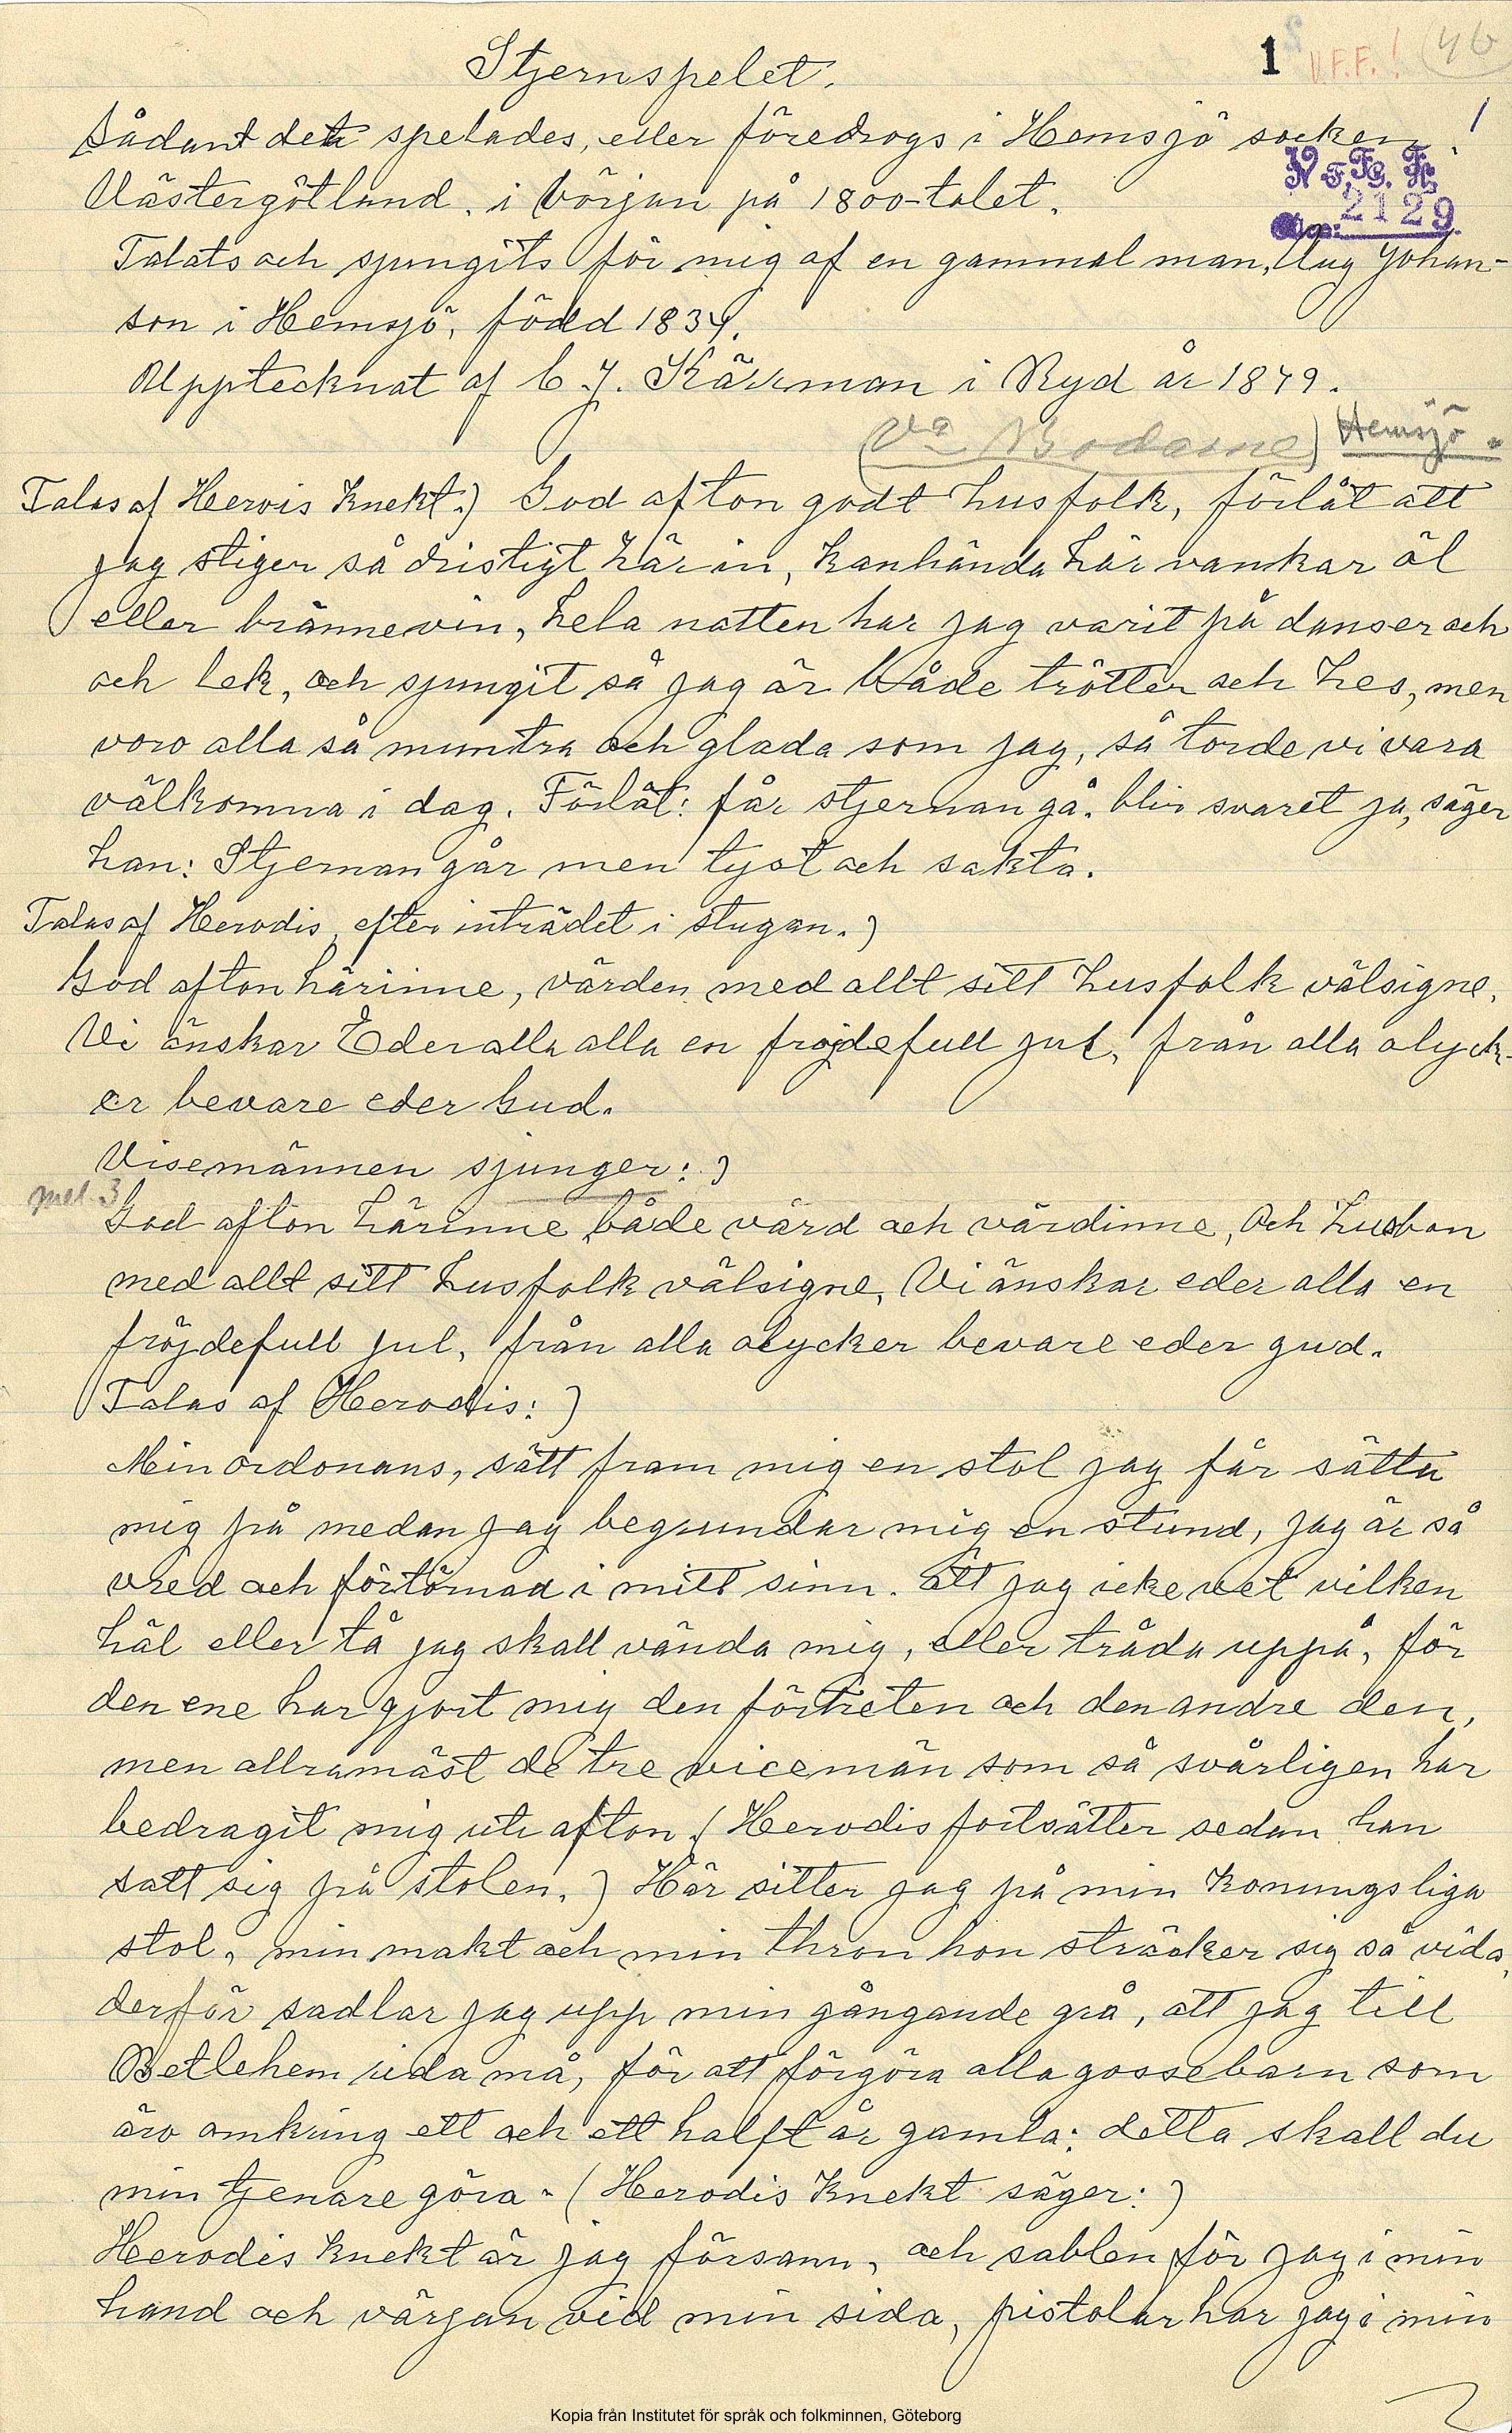 Stjernspelet.
1 V.F.F.! 46
Sådant det spelades, eller föredrogs i Hemsjö socken
Västergötland, i början på 1800-talet.
V.F.F.
2129
Talats och sjungits för mig af en gammal man, Aug Johan-
son i Hemsjö, född 1834.
Upptecknat af C. J. Kärrman i Ryd år 1879.
(Va Bodarne) Hemsjö.
Talas af Herois Knekt:) God afton godt husfolk, förlåt att
jag stiger så dristigt här in, kanhända här vankar öl
eller brännevin, hela natten har jag varit på danser och
och lek, och sjungit så jag är både trötter och hes, men
voro alla så muntra och glada som jag, så torde vi vara
välkomna i dag. Förlåt: får stjernan gå. blir svaret ja, säger
han: Stjernan går men tyst och sakta.
Talas af Herodis, efter inträdet i stugan.)
God afton härinne, värden med allt sitt husfolk välsigne,
Vi önskar Eder alla alla en fröjdefull jul, från alla olyck-
er bevare eder Gud.
Visemännen sjunger:)
mel. 3
God afton härinne både värd och värdinne, Och husbon
med allt sitt husfolk välsigne, Vi önskar eder alla en
fröjdefull jul, från alla olycker bevare eder gud.
Talas af Herodis:)
Min ordonans, sätt fram mig en stol jag får sätta
mig på medan jag begrundar mig en stund, jag är så
vred och förtörnad i mitt sinn. att jag icke vet vilken
häl eller tå jag skall vända mig, eller tråda uppå, för
den ene har gjort mig den förtreten och den andre den,
men allramäst de tre vicemän som så svårligen har
bedragit mig uti afton. (Herodis fortsätter sedan han
satt sig på stolen.) Här sitter jag på min Konungsliga
stol, min makt och min thron hon sträcker sig så vida,
derför sadlar jag upp min gångande grå, att jag till
Betlehem rida må, för att förgöra alla gossebarn som
äro omkring ett och ett halft år gamla: detta skall du
min tjenare göra. (Herodis Knekt säger:)
Herodis knekt är jag försann, och sablen för jag i min
hand och värjan vid min sida, pistolar har jag i min
Kopia från Institutet för språk och folkminnen, Göteborg